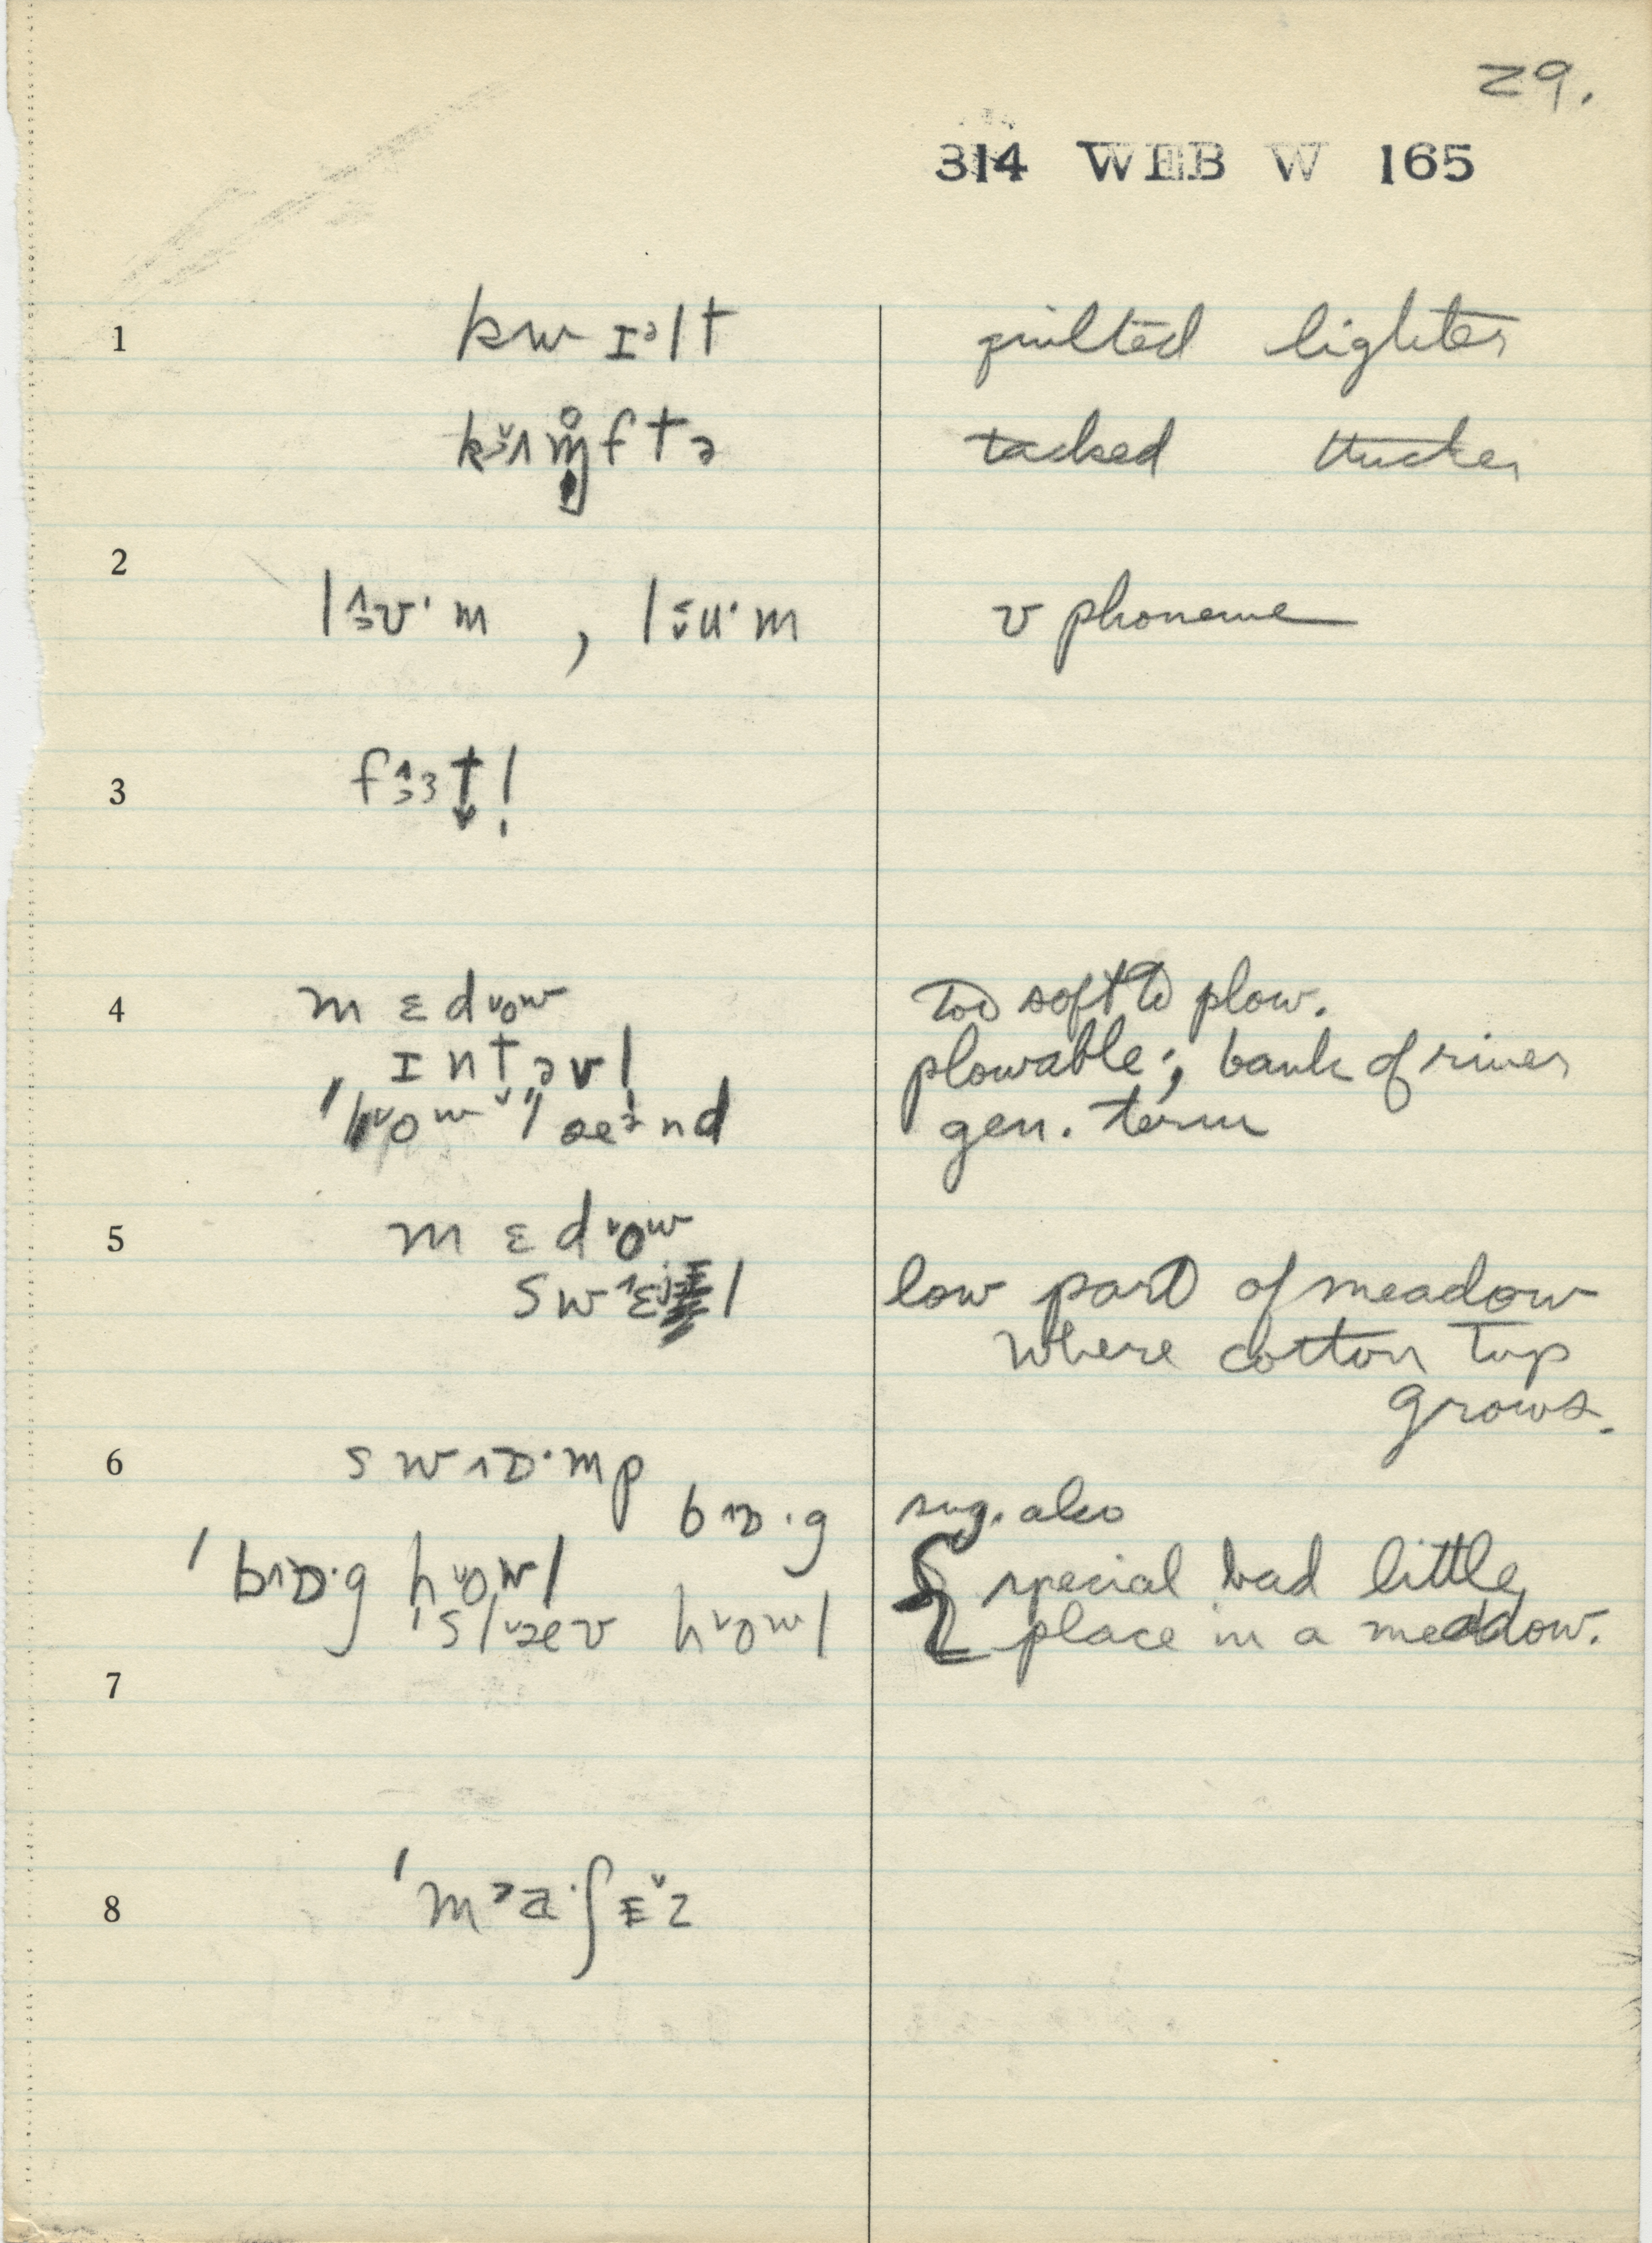 29.
314 WEB W 165
1 kwɪᵊlt quilted lighter
kɜʌm̥ftə tacked thicker
2 lɜʊ·m , lɜu·m ʊ phoneme
3 fɜɜt!
4 mɛdow too soft to plow.
ɪntəvl plowable; bank of river
gen. term
5 mɛdow
swɛjl low part of meadow
where cotton top
grows.
6 swɒ·mp
bɒ·g sug. also
ˈbɒ·g howl special bad little
ˈslæv howl place in a meadow.
7
8 ˈma·ʃɛz